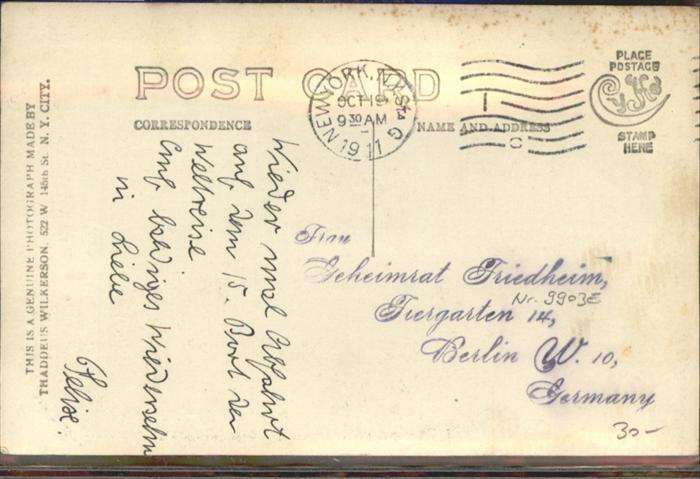 THIS IS A GENUINE PHOTOGRAPH MADE BY
THADDEUS WILKERSON. 522 W 148th St. N. Y. CITY.
POST CARD
CORRESPONDENCE
NAME AND ADDRESS
NEW YORK, N.Y.
STA G
OCT 19
9 30 AM
1911
PLACE
POSTAGE
STAMP
HERE
Wieder mal Abfahrt
auf dem 15. Boot der
Weltreise.
Auf baldiges Wiedersehn
in Liebe
Felix.
Frau
Geheimrat Friedheim,
Nr. 9903E
Tiergarten 14,
Berlin W. 10,
Germany
30-